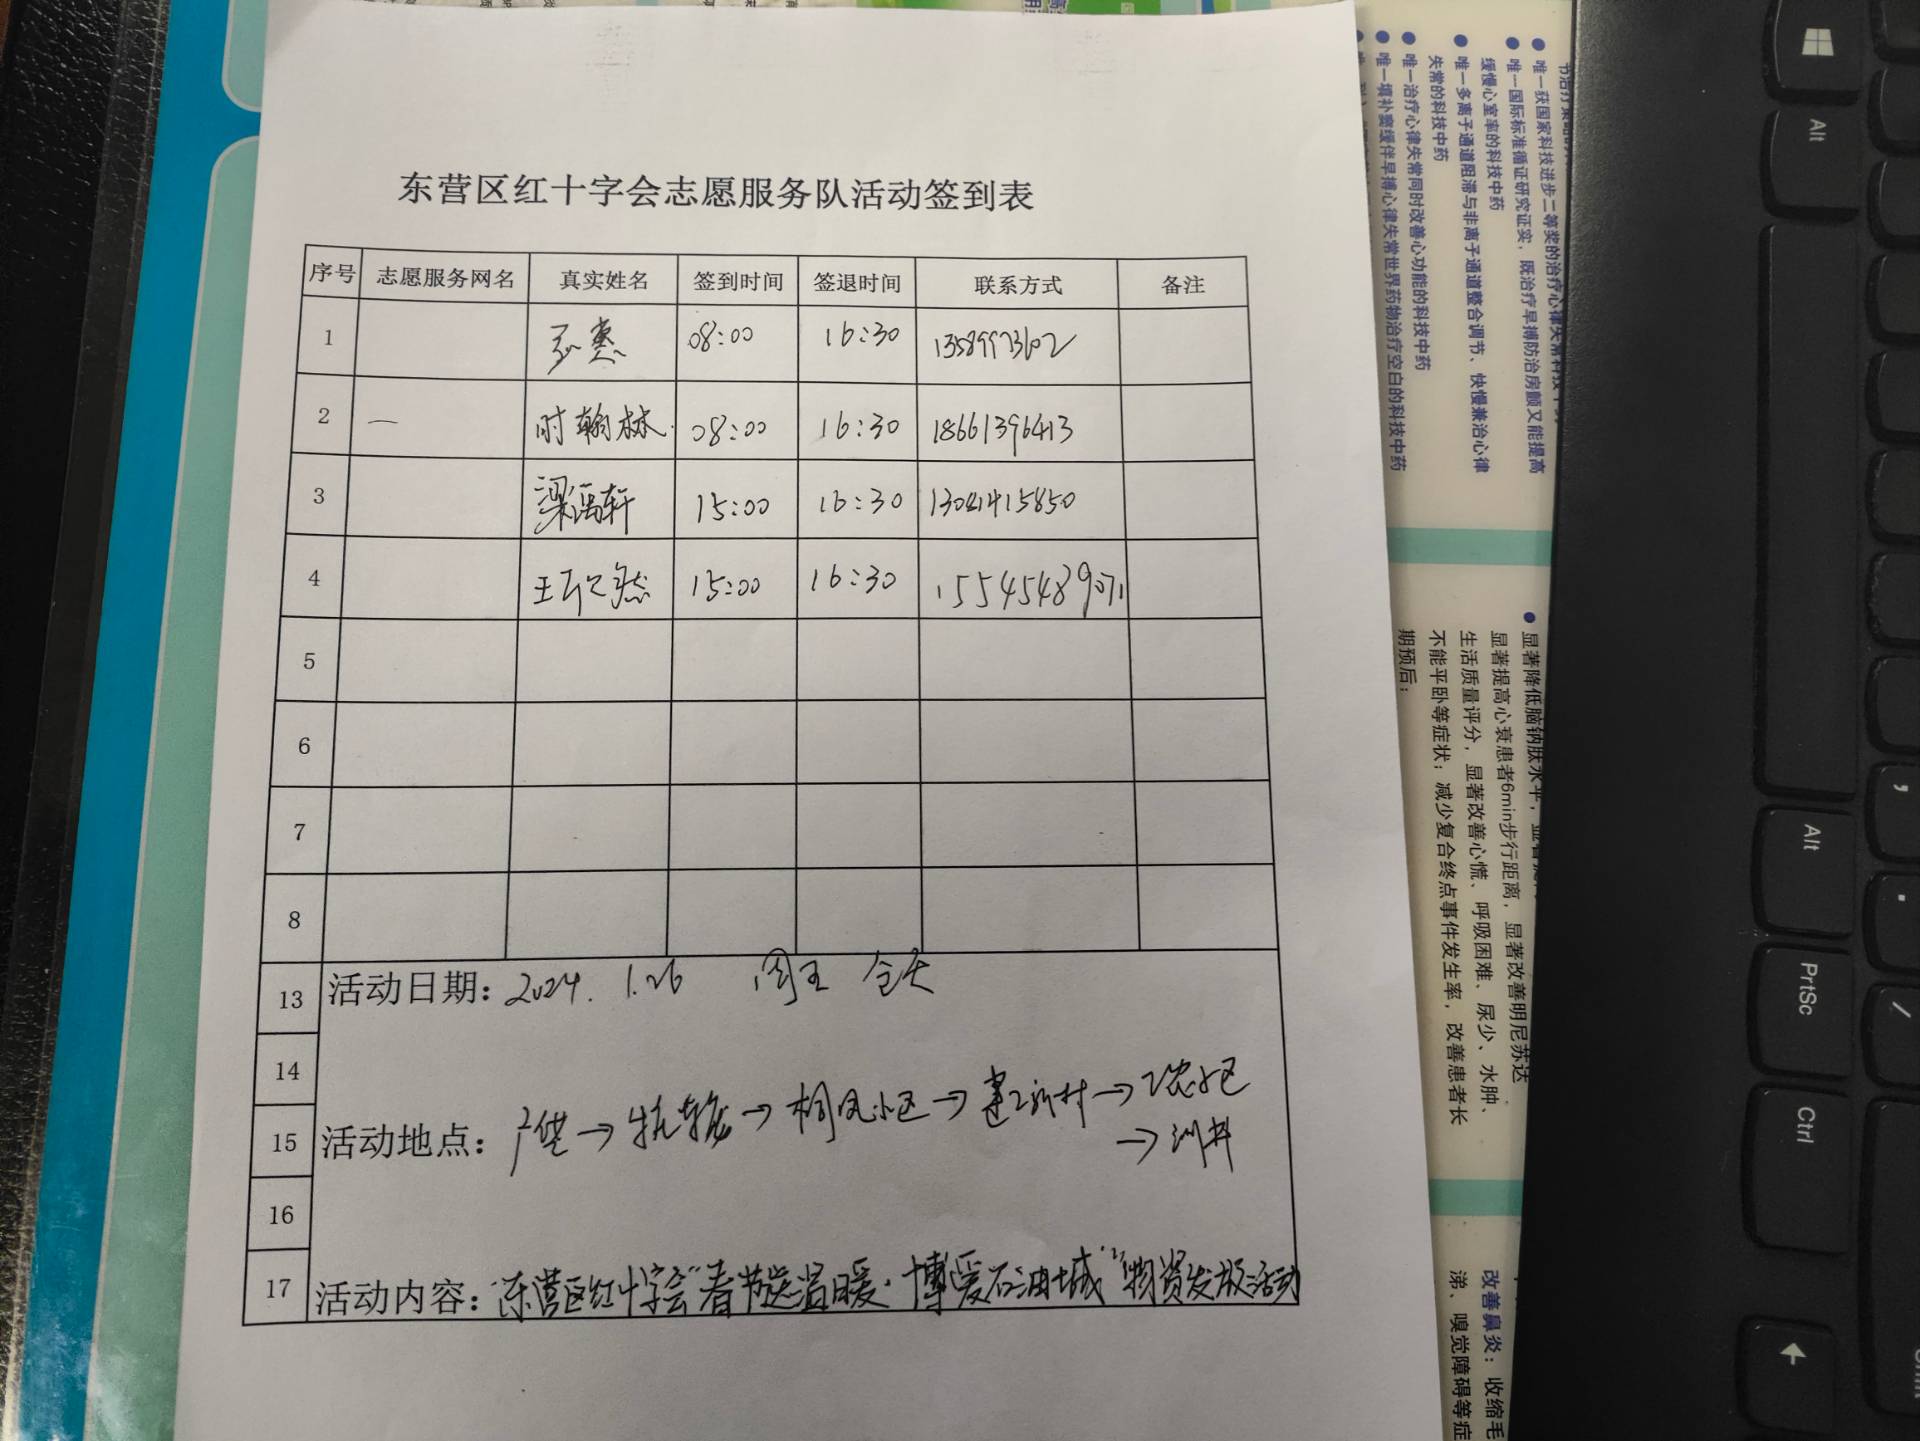 东营区红十字会志愿服务队活动签到表
序号 志愿服务网名 真实姓名 签到时间 签退时间 联系方式 备注
1 08:00 16:30 13589973602
2 一 时翰林 08:00 16:30 18661396413
3 梁禹轩 15:00 16:30
4 15:00 16:30 15545489071
5
6
7
8
13 活动日期：2024.1.26 周五 全天
14
15 活动地点： → → 桐凤小区 → 建工新村 → 小区
→
16
17 活动内容：东营区红十字会"春节送温暖·博爱石油城"物资发放活动
唯一获国家科技进步二等奖的治疗心律失常科技中药
唯一国际标准循证研究证实，既治疗早搏防治房颤又能提高
缓慢心室率的科技中药
唯一多离子通道阻滞与非离子通道整合调节、快慢兼治心律
失常的科技中药
唯一治疗心律失常同时改善心功能的科技中药
唯一填补窦缓伴早搏心律失常世界药物治疗空白的科技中药
显著降低脑钠肽水平，
显著提高心衰患者6min步行距离，显著改善明尼苏达
生活质量评分，显著改善心慌、呼吸困难、尿少、水肿、
不能平卧等症状；减少复合终点事件发生率，改善患者长
期预后；
改善鼻炎：收缩毛
涕、嗅觉障碍等症
Alt
Alt
PrtSc
Ctrl